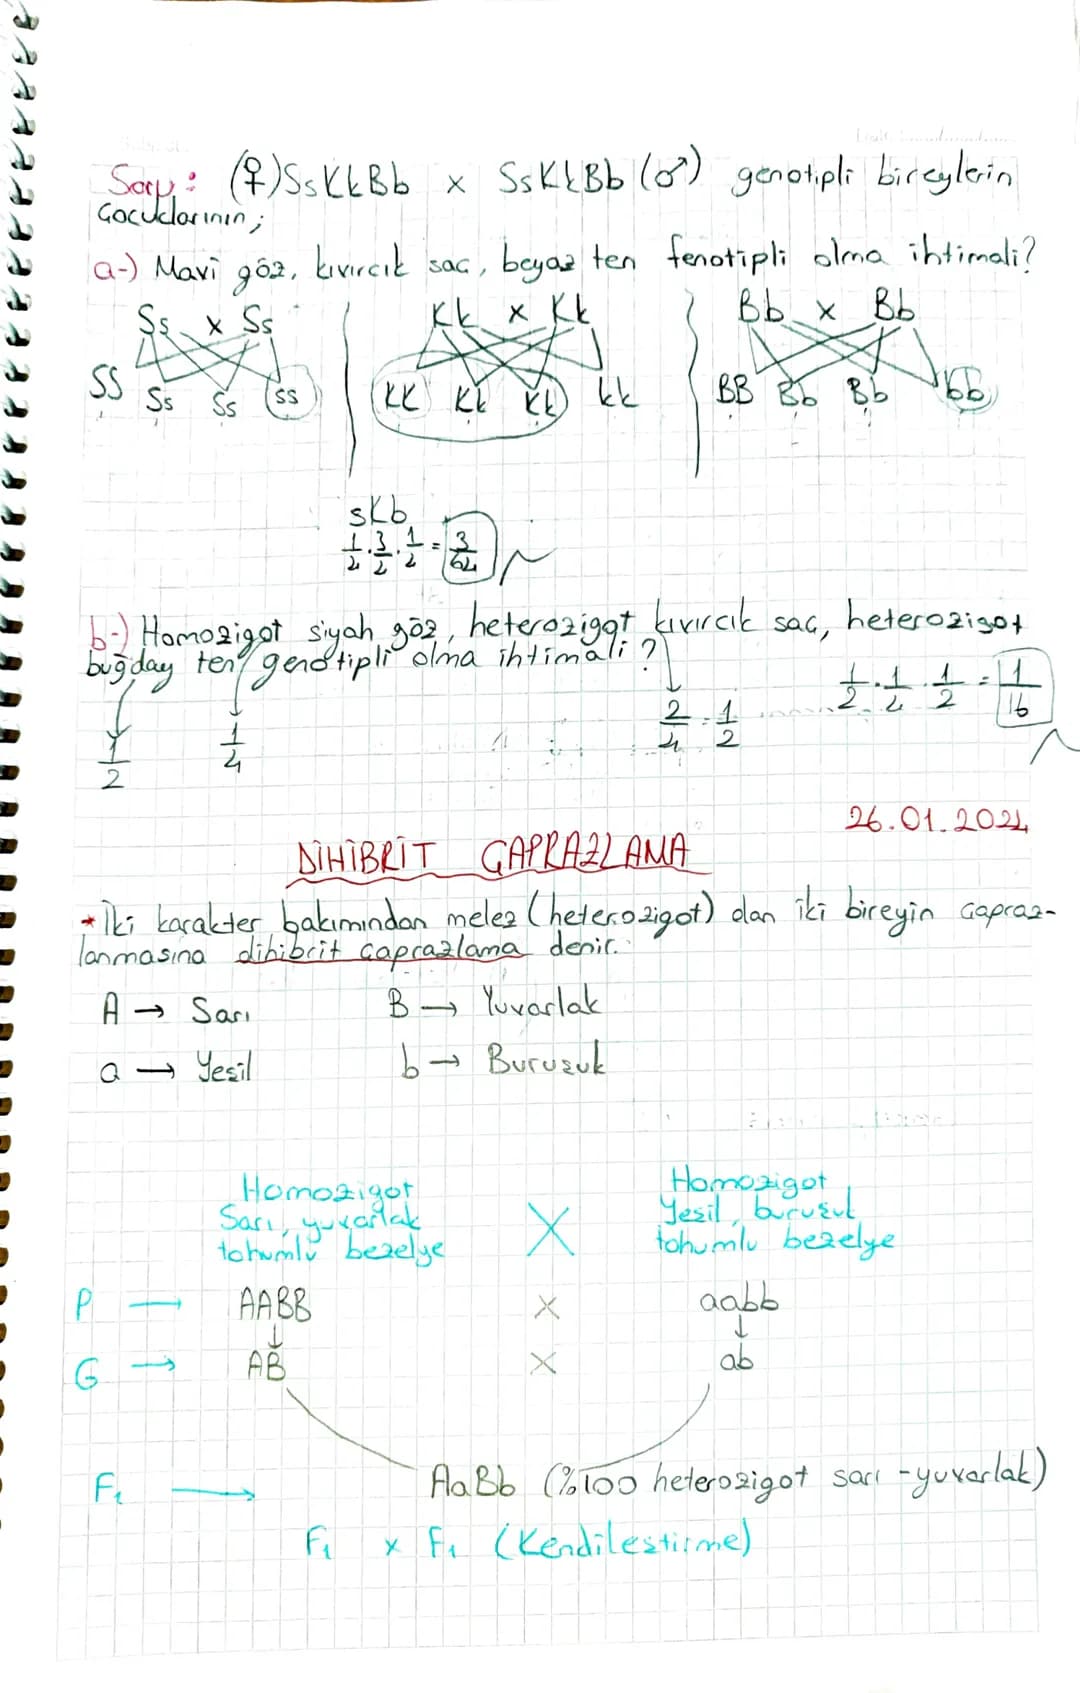 Soru: (♀)SsKkBb x SsKkBb (♂) genotipli bireylerin
Çocuklarının;
a-) Mavi göz, kıvırcık saç, beyaz ten fenotipli olma ihtimali?
Ss x Ss
Kk x Kk
Bb x Bb
SS Ss Ss ss
KK Kk Kk kk
BB Bb Bb bb
sKb
1/4 . 3/4 . 1/4 = 3/64
b-) Homozigot siyah göz, heterozigot kıvırcık saç, heterozigot
buğday ten genotipli olma ihtimali?
1/2 . 1/4 . 1/2 = 1/16
1/2
1/4
2/4 = 1/2
26.01.2024
DİHİBRİT ÇAPRAZLAMA
* İki karakter bakımından melez (heterozigot) olan iki bireyin çapraz-
lanmasına dihibrit çaprazlama denir.
A → Sarı B → Yuvarlak
a → Yeşil b → Buruşuk
Homozigot
Sarı, yuvarlak
tohumlu bezelye
X
Homozigot
Yeşil, buruşuk
tohumlu bezelye
P → AABB x aabb
G → AB x ab
F₁ → AaBb (%100 heterozigot sarı - yuvarlak)
F₁ x F₁ (Kendileştirme)